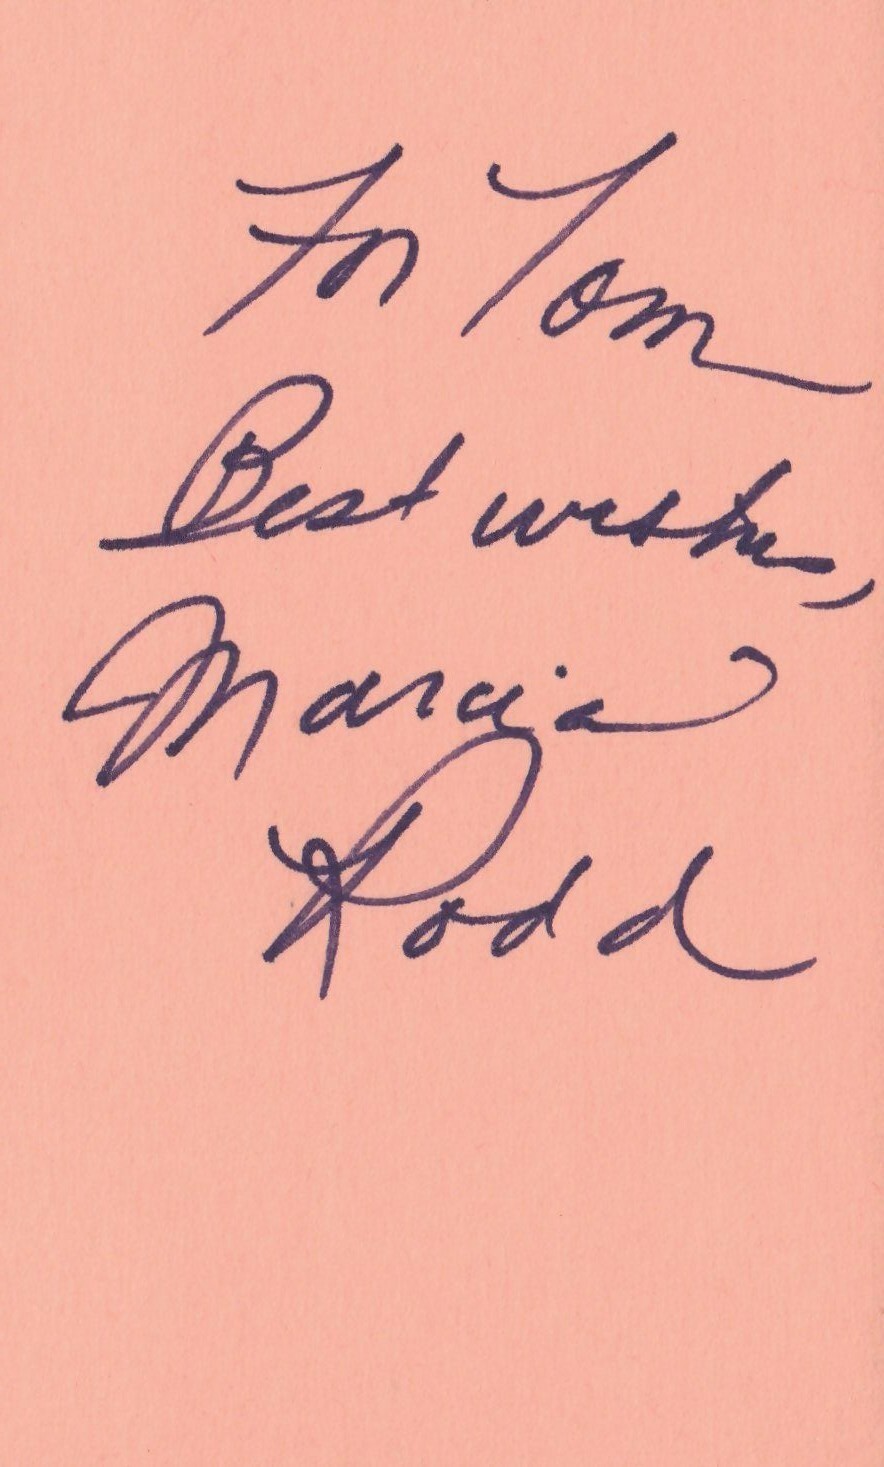 For Tom
Best wishes,
Marcia
Rodd